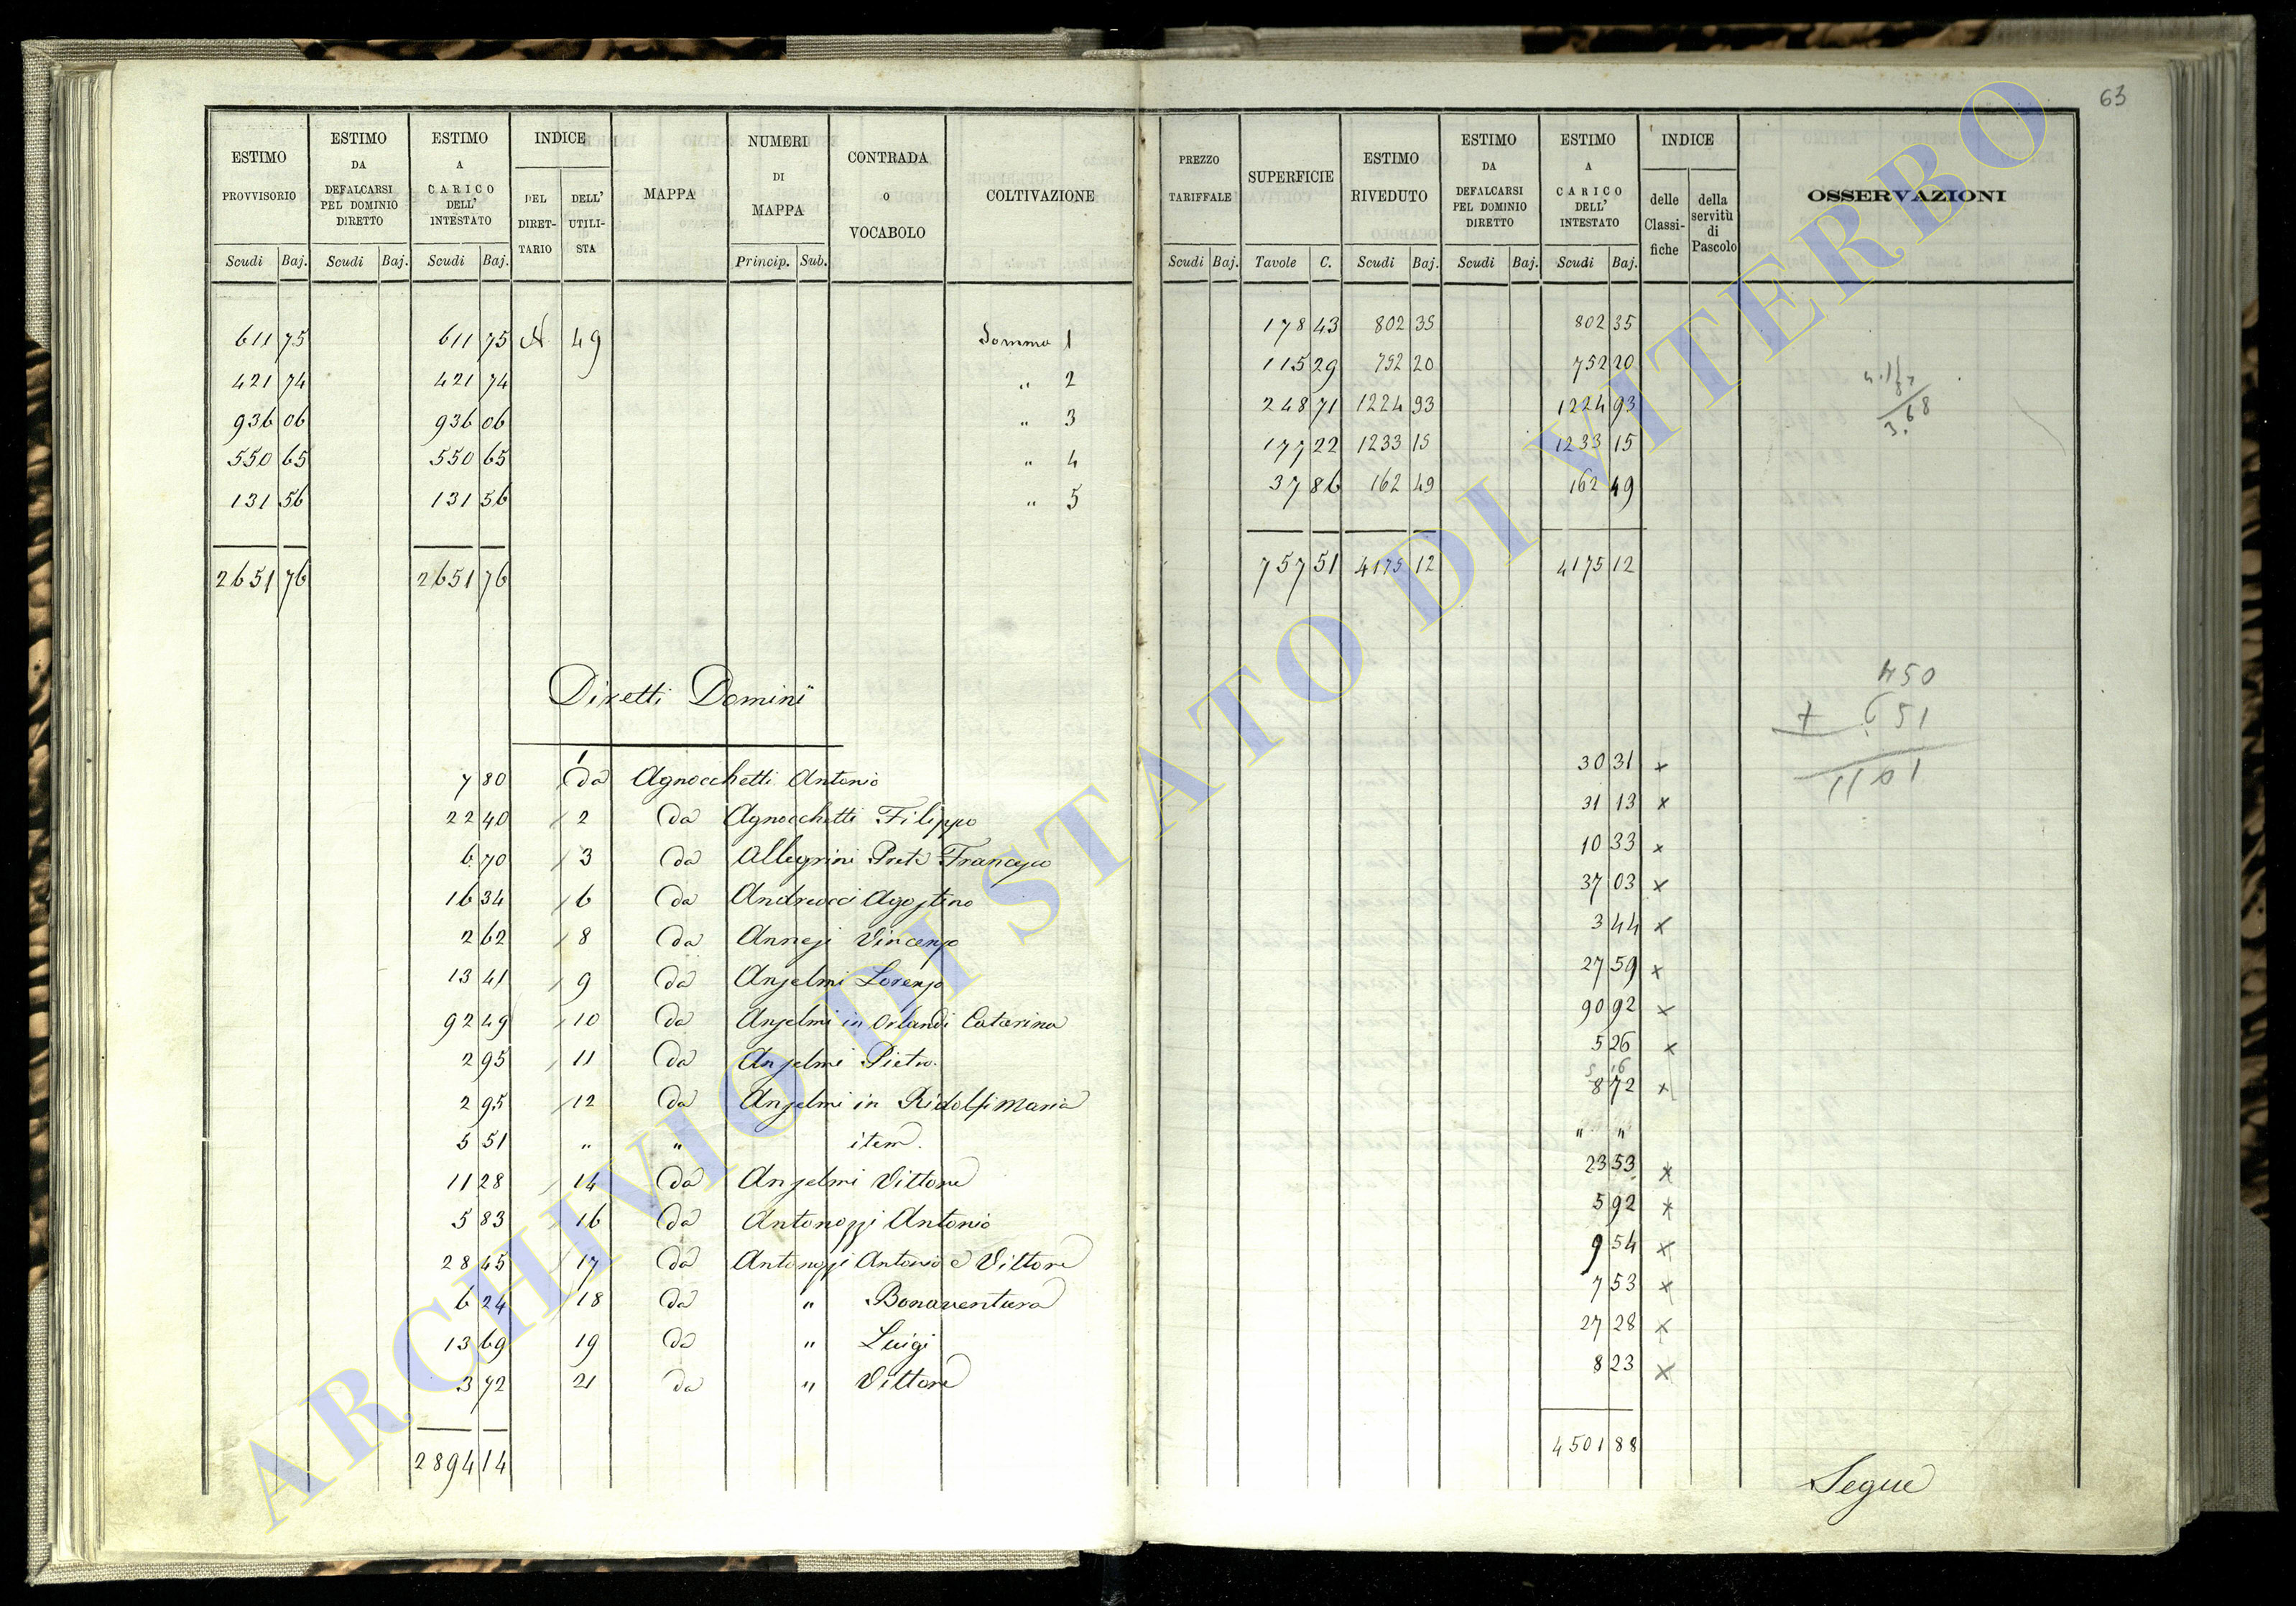 63
ESTIMO PROVVISORIO | ESTIMO DA DEFALCARSI PEL DOMINIO DIRETTO | ESTIMO A CARICO DELL' INTESTATO | INDICE DEL DIRETTARIO | DELL' UTILISTA | MAPPA | NUMERI DI MAPPA | CONTRADA o VOCABOLO | COLTIVAZIONE | PREZZO TARIFFALE | SUPERFICIE | ESTIMO RIVEDUTO | ESTIMO DA DEFALCARSI PEL DOMINIO DIRETTO | ESTIMO A CARICO DELL' INTESTATO | INDICE delle Classifiche | della servitù di Pascolo | OSSERVAZIONI
Scudi | Baj. | Scudi | Baj. | Scudi | Baj. | Princip. | Sub. | Scudi | Baj. | Tavole | C. | Scudi | Baj. | Scudi | Baj. | Scudi | Baj.
611 75 | 611 75 | A | 49 | Somma 1 | 178 43 | 802 35 | 802 35
421 74 | 421 74 | " 2 | 115 29 | 752 20 | 752 20
936 06 | 936 06 | " 3 | 248 71 | 1224 93 | 1224 93
550 65 | 550 65 | " 4 | 177 22 | 1233 15 | 1233 15
131 56 | 131 56 | " 5 | 37 86 | 162 49 | 162 49
2651 76 | 2651 76 | 757 51 | 4175 12 | 4175 12
Diretti Domini
450
+ 651
1101
7 80 | 1 | da Agnocchetti Antonio | 30 31 x
22 40 | / 2 | da Agnocchetti Filippo | 31 13 x
6 70 | / 3 | da Allegrini Prete Francesco | 10 33 x
16 34 | / 6 | da Andreucci Agostino | 37 03 x
2 62 | / 8 | da Annesi Vincenzo | 3 44 x
13 41 | / 9 | da Anselmi Lorenzo | 27 59 x
92 49 | / 10 | da Anselmi in Orlandi Catarina | 90 92 x
2 95 | / 11 | da Anselmi Pietro | 5 26 x
2 95 | / 12 | da Anselmi in Ridolfi Maria | 8 72 x
5 51 | " | " item. | " "
11 28 | / 14 | da Anselmi Vittore | 23 53 x
5 83 | / 16 | da Antonozzi Antonio | 5 92 x
28 45 | / 17 | da Antonozzi Antonio e Vittore | 9 54 x
6 24 | / 18 | da " Bonaventura | 7 53 x
13 69 | 19 | da " Luigi | 27 28 x
3 72 | 21 | da " Vittore | 8 23 x
2894 14 | 4501 88
Segue
ARCHIVIO DI STATO DI VITERBO